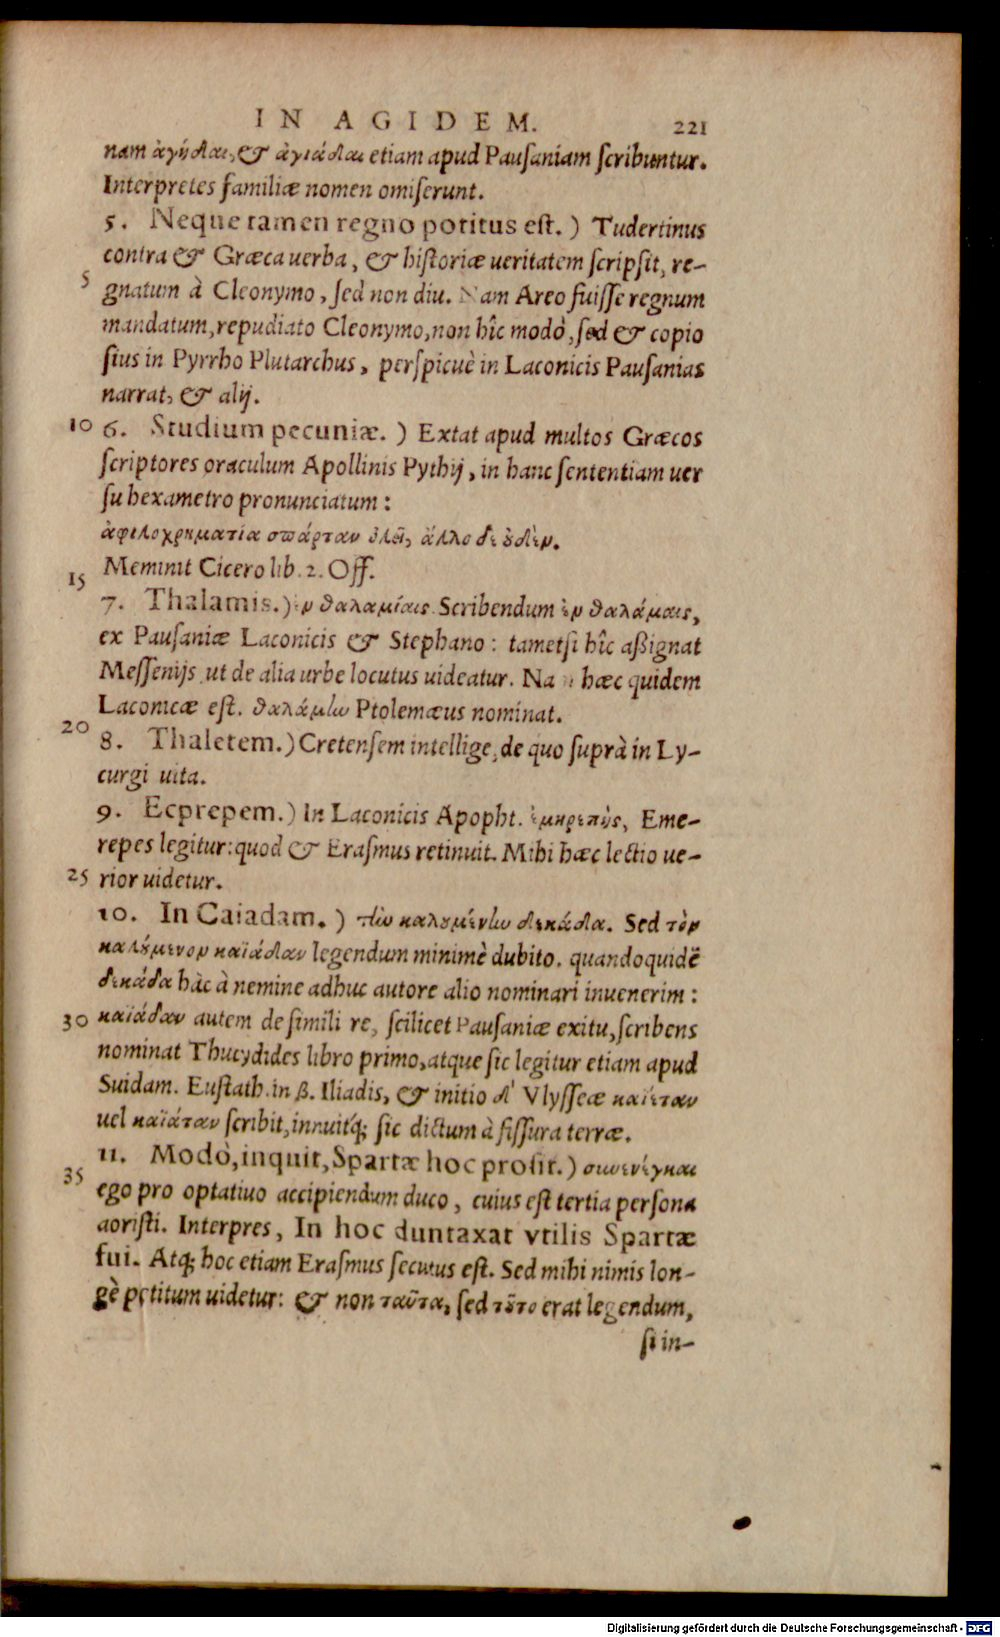 IN AGIDEM. 221
nam ἀγῆδαι, & ἀγιάδαι etiam apud Pauſaniam ſcribuntur.
Interpretes familiæ nomen omiſerunt.
5. Neque tamen regno potitus eſt.) Tudertinus
contra & Græca uerba, & hiſtoriæ ueritatem ſcripſit, re-
5 gnatum à Cleonymo, ſed non diu. Nam Areo fuiſſe regnum
mandatum, repudiato Cleonymo, non hîc modò, ſed & copio
ſius in Pyrrho Plutarchus, perſpicuè in Laconicis Pauſanias
narrat, & alij.
10 6. Studium pecuniæ.) Extat apud multos Græcos
ſcriptores oraculum Apollinis Pythij, in hanc ſententiam uer
ſu hexametro pronunciatum:
ἀφιλοχρηματία σπάρταν ὀλεῖ, ἄλλο δε οὐδὲν.
Meminit Cicero lib. 2. Off.
15 7. Thalamis.) ἐν θαλαμίαις. Scribendum ἐν θαλάμαις,
ex Pauſaniæ Laconicis & Stephano: tametſi hîc aßignat
Meſſenijs, ut de alia urbe locutus uideatur. Nam hæc quidem
Laconicæ eſt. θαλάμην Ptolemæus nominat.
20 8. Thaletem.) Cretenſem intellige, de quo ſuprà in Ly-
curgi uita.
9. Ecprepem.) In Laconicis Apopht. ἐμηρεπὴς, Eme-
repes legitur: quod & Eraſmus retinuit. Mihi hæc lectio ue-
25 rior uidetur.
10. In Caiadam.) τὴν καλουμένην δεκάδα. Sed τὸν
καλούμενον καϊάδαν legendum minimè dubito. quandoquidẽ
δεκάδα hàc à nemine adhuc autore alio nominari inuenerim:
30 καϊάδαν autem de ſimili re, ſcilicet Pauſaniæ exitu, ſcribens
nominat Thucydides libro primo, atque ſic legitur etiam apud
Suidam. Euſtath. in β. Iliadis, & initio δ' Vlyſſeæ καϊέταν
uel καϊάταν ſcribit, innuitq́; ſic dictum à fiſſura terræ.
11. Modò, inquit, Spartæ hoc proſit.) συνενέγκαι
35 ego pro optatiuo accipiendum duco, cuius eſt tertia perſona
aoriſti. Interpres, In hoc duntaxat vtilis Spartæ
fui. Atq; hoc etiam Eraſmus ſecutus eſt. Sed mihi nimis lon-
gè petitum uidetur: & non ταῦτα, ſed τοῦτο erat legendum,
ſi in-
Digitalisierung gefördert durch die Deutsche Forschungsgemeinschaft - DFG